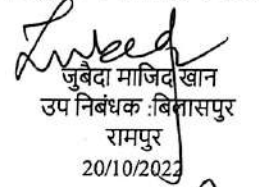 Zubed
जुबैदा माजिद खान
उप निबंधक :बिलासपुर
रामपुर
20/10/2022